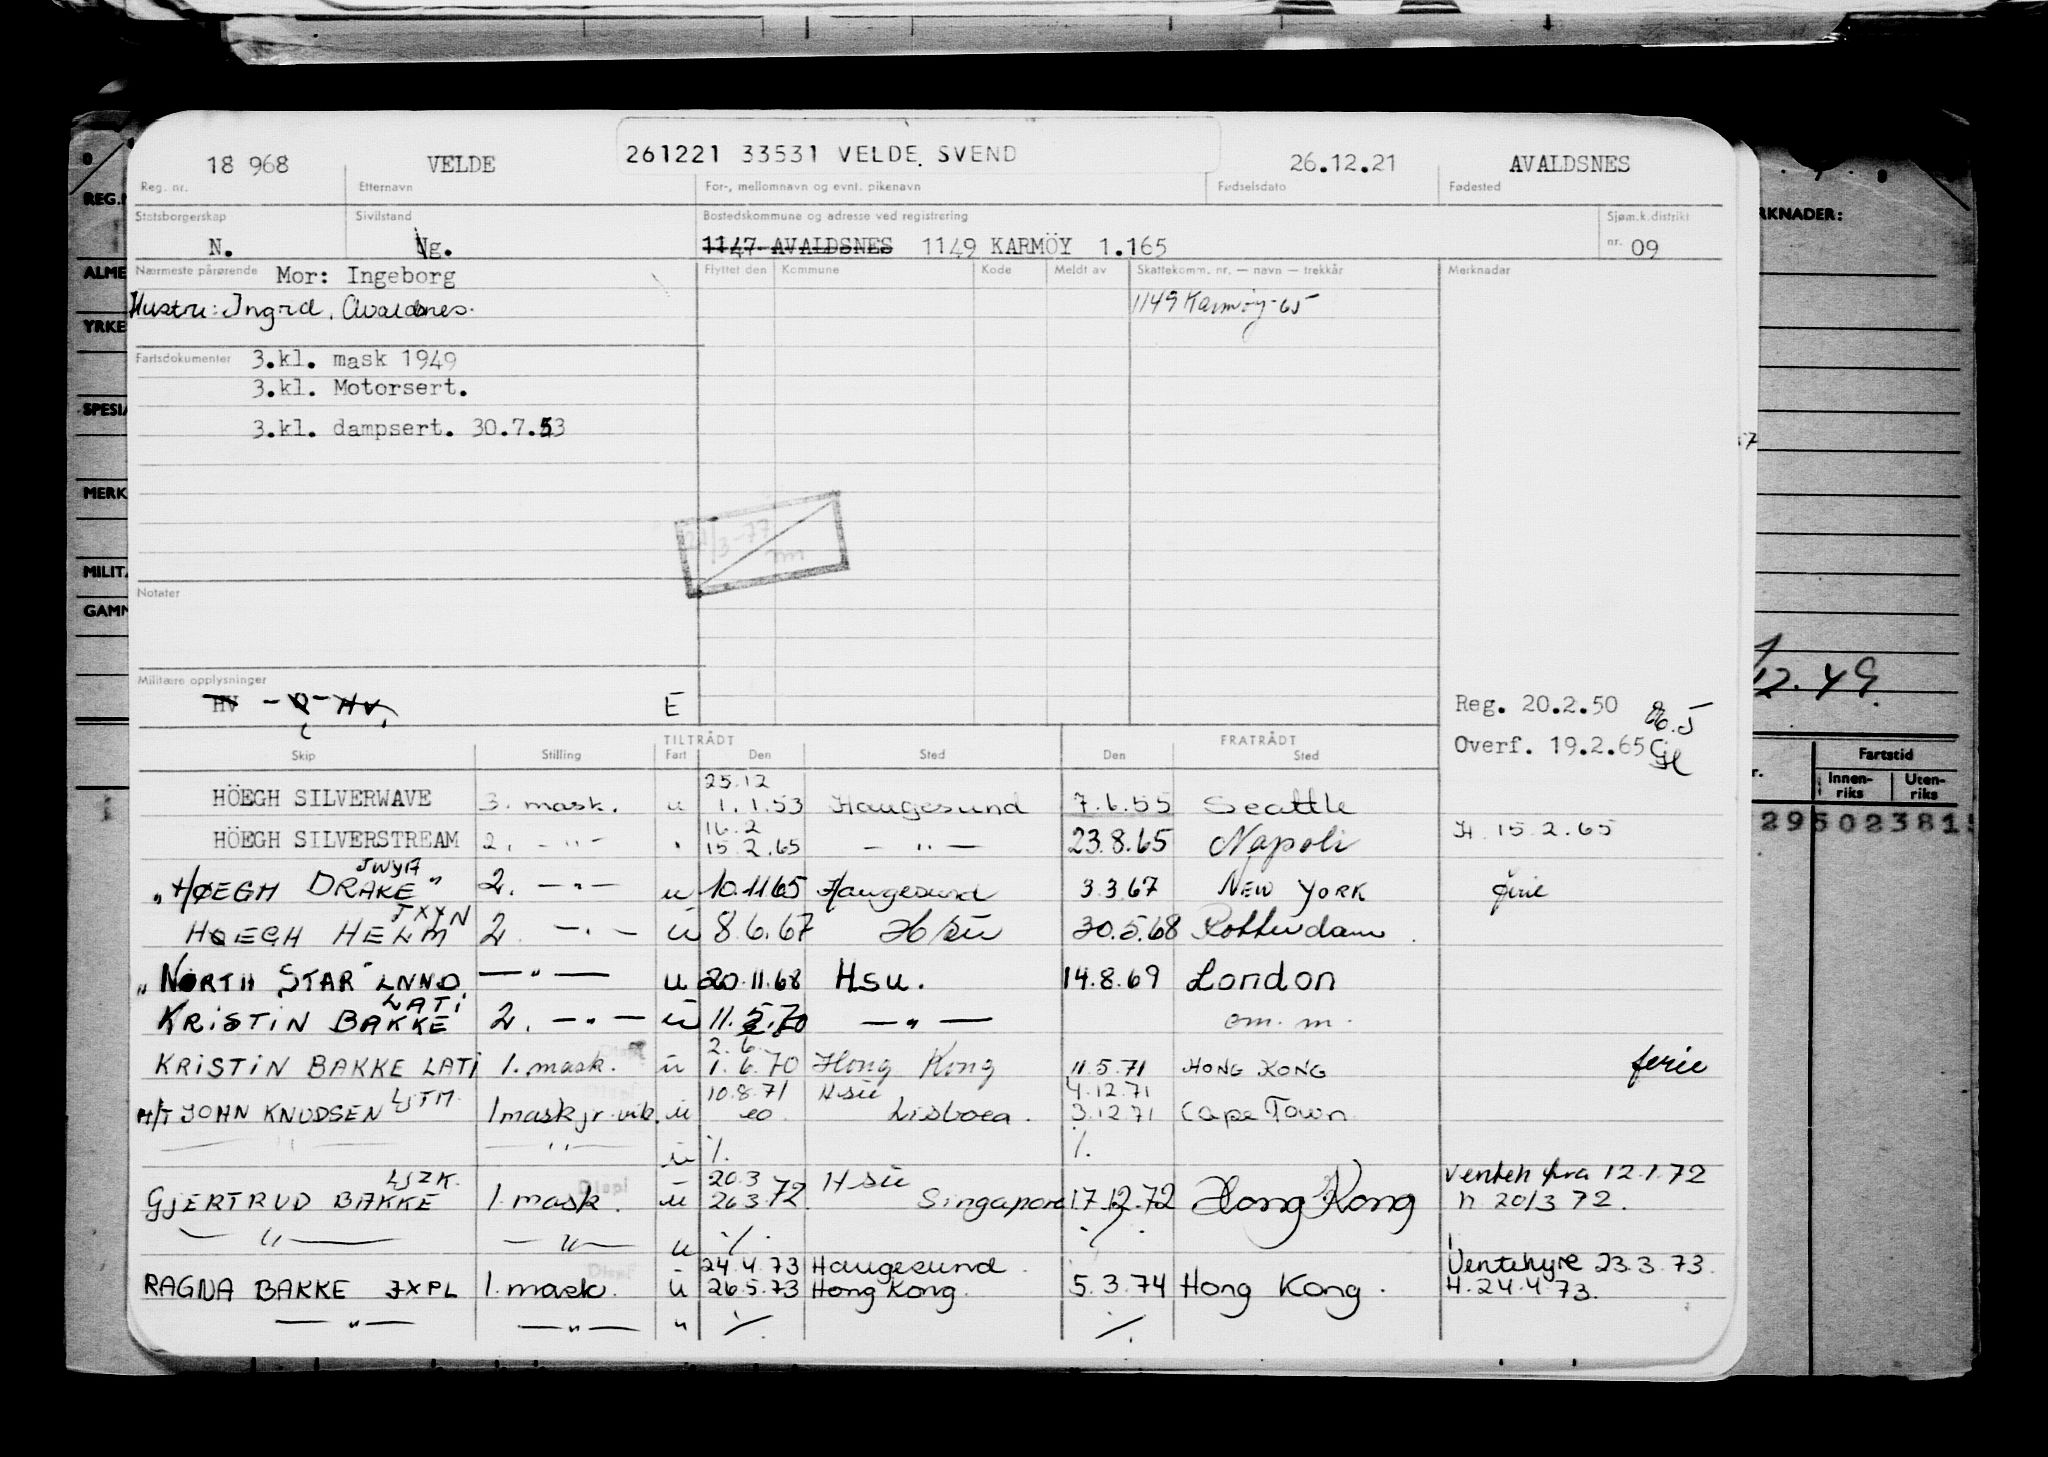 18 968 VELDE 261221 33531 VELDE, SVEND 26.12.21 AVALDSNES
Reg. nr. Etternavn For-, mellomnavn og evnt. pikenavn Fødselsdato Fødested
Statsborgerskap Sivilstand Bostedskommune og adresse ved registrering Sjøm.k.distrikt
N. Ug. 1147 AVALDSNES 1149 KARMÖY 1.165 nr. 09
Nærmeste pårørende Mor: Ingeborg Flyttet den Kommune Kode Meldt av Skattekomm. nr. — navn — trekkår Merknader
Hustru: Ingrid, Avaldsnes. 1149 Karmøy-65
Fartsdokumenter 3.kl. mask 1949
3.kl. Motorsert.
3.kl. dampsert. 30.7.53
/3-77
Notater
Militære opplysninger
HV - Q - HV. E
Reg. 20.2.50
Overf. 19.2.65
TILTRÅDT FRATRÅDT
Skip Stilling Fart Den Sted Den Sted
25.12
HÖEGH SILVERWAVE 3. mask. u 1.1.53 Haugesund 7.6.55 Seattle
16.2
HÖEGH SILVERSTREAM 2. — " — " 15.2.65 — " — 23.8.65 Napoli H 15.2.65
JWYA
"HØEGH DRAKE" 2. — " — u 10.11.65 Haugesund 3.3.67 NEW YORK ferie
JXYN
HØEGH HELM 2. — " — u 8.6.67 H/su 30.5.68 Rotterdam.
"NORTH STAR" LNND — " — u 20.11.68 Hsu. 14.8.69 London
LATI
KRISTIN BAKKE 2. — " — u 11.5.70 — " — om. m.
2.6.
KRISTIN BAKKE LATI 1. mask. u 1.6.70 Hong Kong 11.5.71 HONG KONG ferie
LJTM 10.8.71 Hsu 4.12.71
M/T JOHN KNUDSEN 1 mask jr. vik. u eo. Lisboa. 3.12.71 Cape Town
— " — — " — u %. %.
LJZK. Displ 20.3 Hsu Venteh fra 12.1.72
GJERTRUD BAKKE 1. mask. u 26.3.72. Singapore 17.12.72 Hong Kong h 20/3 72.
— " — — " — u %. %.
24.4.73 Haugesund. Ventehyre 23.3.73.
RAGNA BAKKE JXPL 1. mask. u 26.5.73 Hong Kong. 5.3.74 Hong Kong. H. 24.4.73.
— " — — " — " %. %.
REG.
ALME
YRKE
SPESIA
MERK
MILIT
GAMM
RKNADER:
12.49
Fartstid
Innen-riks Uten-riks